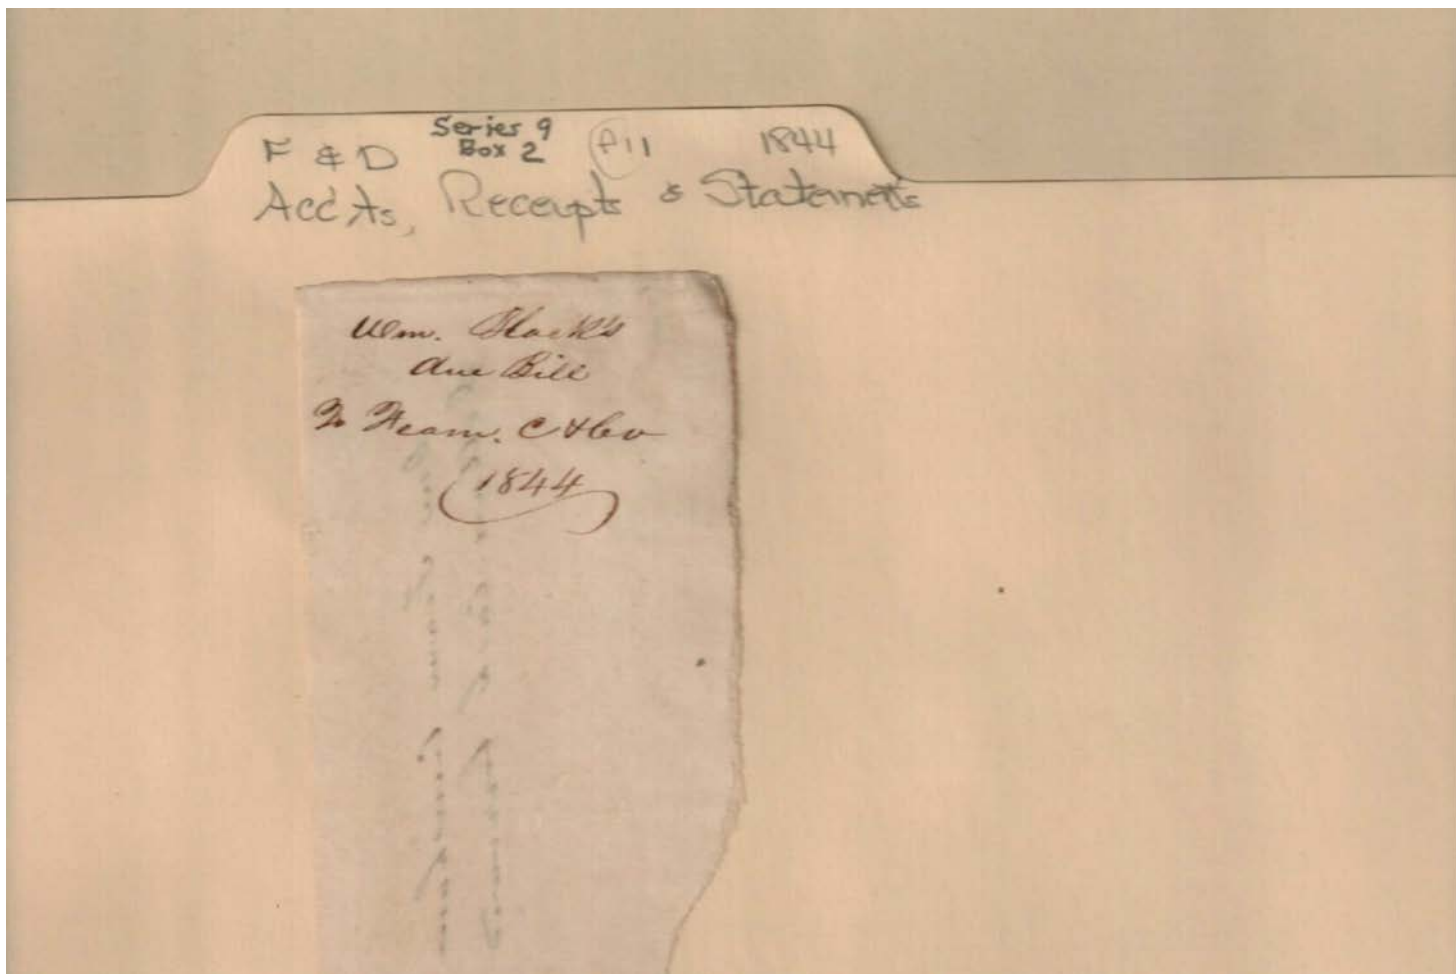 Series 9
F & D Box 2 P11 1844
Acc'ts, Receipts & Statements
Wm. Black's
due Bill
To Feam. C & Co
1844